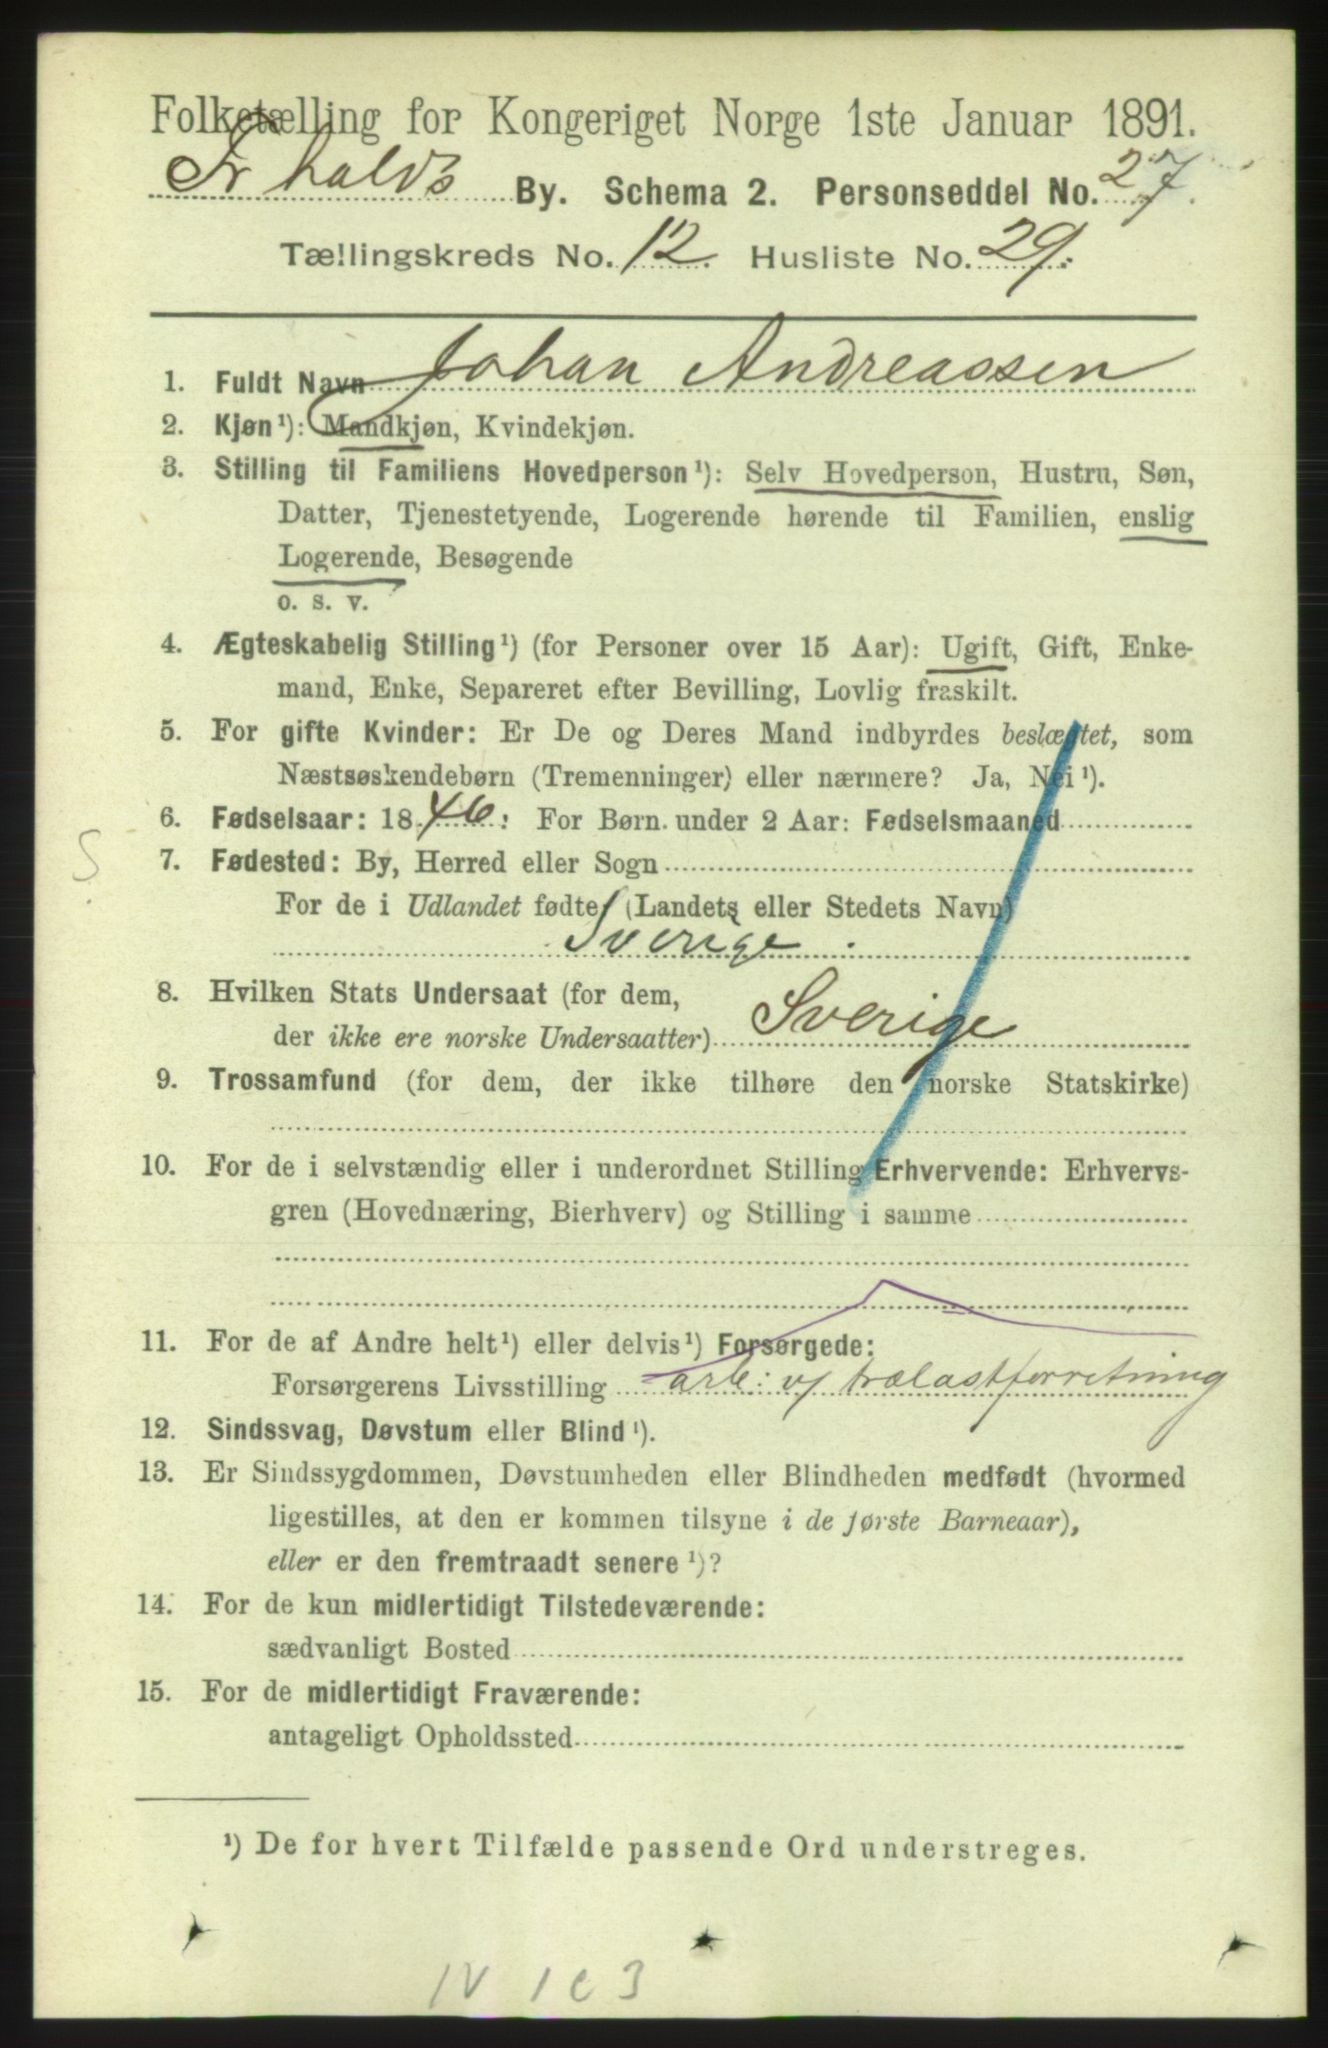 Folketælling for Kongeriget Norge 1ste Januar 1891.
Fr halds By. Schema 2. Personseddel No. 27.
Tællingskreds No. 12. Husliste No. 29.
1. Fuldt Navn Johan Andreassen
2. Kjøn ¹): Mandkjøn, Kvindekjøn.
3. Stilling til Familiens Hovedperson ¹): Selv Hovedperson, Hustru, Søn,
Datter, Tjenestetyende, Logerende hørende til Familien, enslig
Logerende, Besøgende
o. s. v.
4. Ægteskabelig Stilling ¹) (for Personer over 15 Aar): Ugift, Gift, Enke-
mand, Enke, Separeret efter Bevilling, Lovlig fraskilt.
5. For gifte Kvinder: Er De og Deres Mand indbyrdes beslægtet, som
Næstsøskendebørn (Tremenninger) eller nærmere? Ja, Nei ¹).
6. Fødselsaar: 1846. For Børn under 2 Aar: Fødselsmaaned
S
7. Fødested: By, Herred eller Sogn
For de i Udlandet fødte (Landets eller Stedets Navn)
Sverige
8. Hvilken Stats Undersaat (for dem,
der ikke ere norske Undersaatter) Sverige
9. Trossamfund (for dem, der ikke tilhøre den norske Statskirke)
10. For de i selvstændig eller i underordnet Stilling Erhvervende: Erhvervs-
gren (Hovednæring, Bierhverv) og Stilling i samme
11. For de af Andre helt ¹) eller delvis ¹) Forsørgede:
Forsørgerens Livsstilling arb: v/ trælastforretning
12. Sindssvag, Døvstum eller Blind ¹).
13. Er Sindssygdommen, Døvstumheden eller Blindheden medfødt (hvormed
ligestilles, at den er kommen tilsyne i de første Barneaar),
eller er den fremtraadt senere ¹)?
14. For de kun midlertidigt Tilstedeværende:
sædvanligt Bosted
15. For de midlertidigt Fraværende:
antageligt Opholdssted
¹) De for hvert Tilfælde passende Ord understreges.
IV 1 c 3